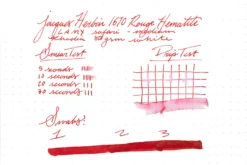 Jacques Herbin 1670 Rouge Hematite
LAMY safari - medium
80 gsm white
Smear Test
Drip Test
5 seconds
10 seconds
20 seconds
30 seconds
Swabs!
1 2 3